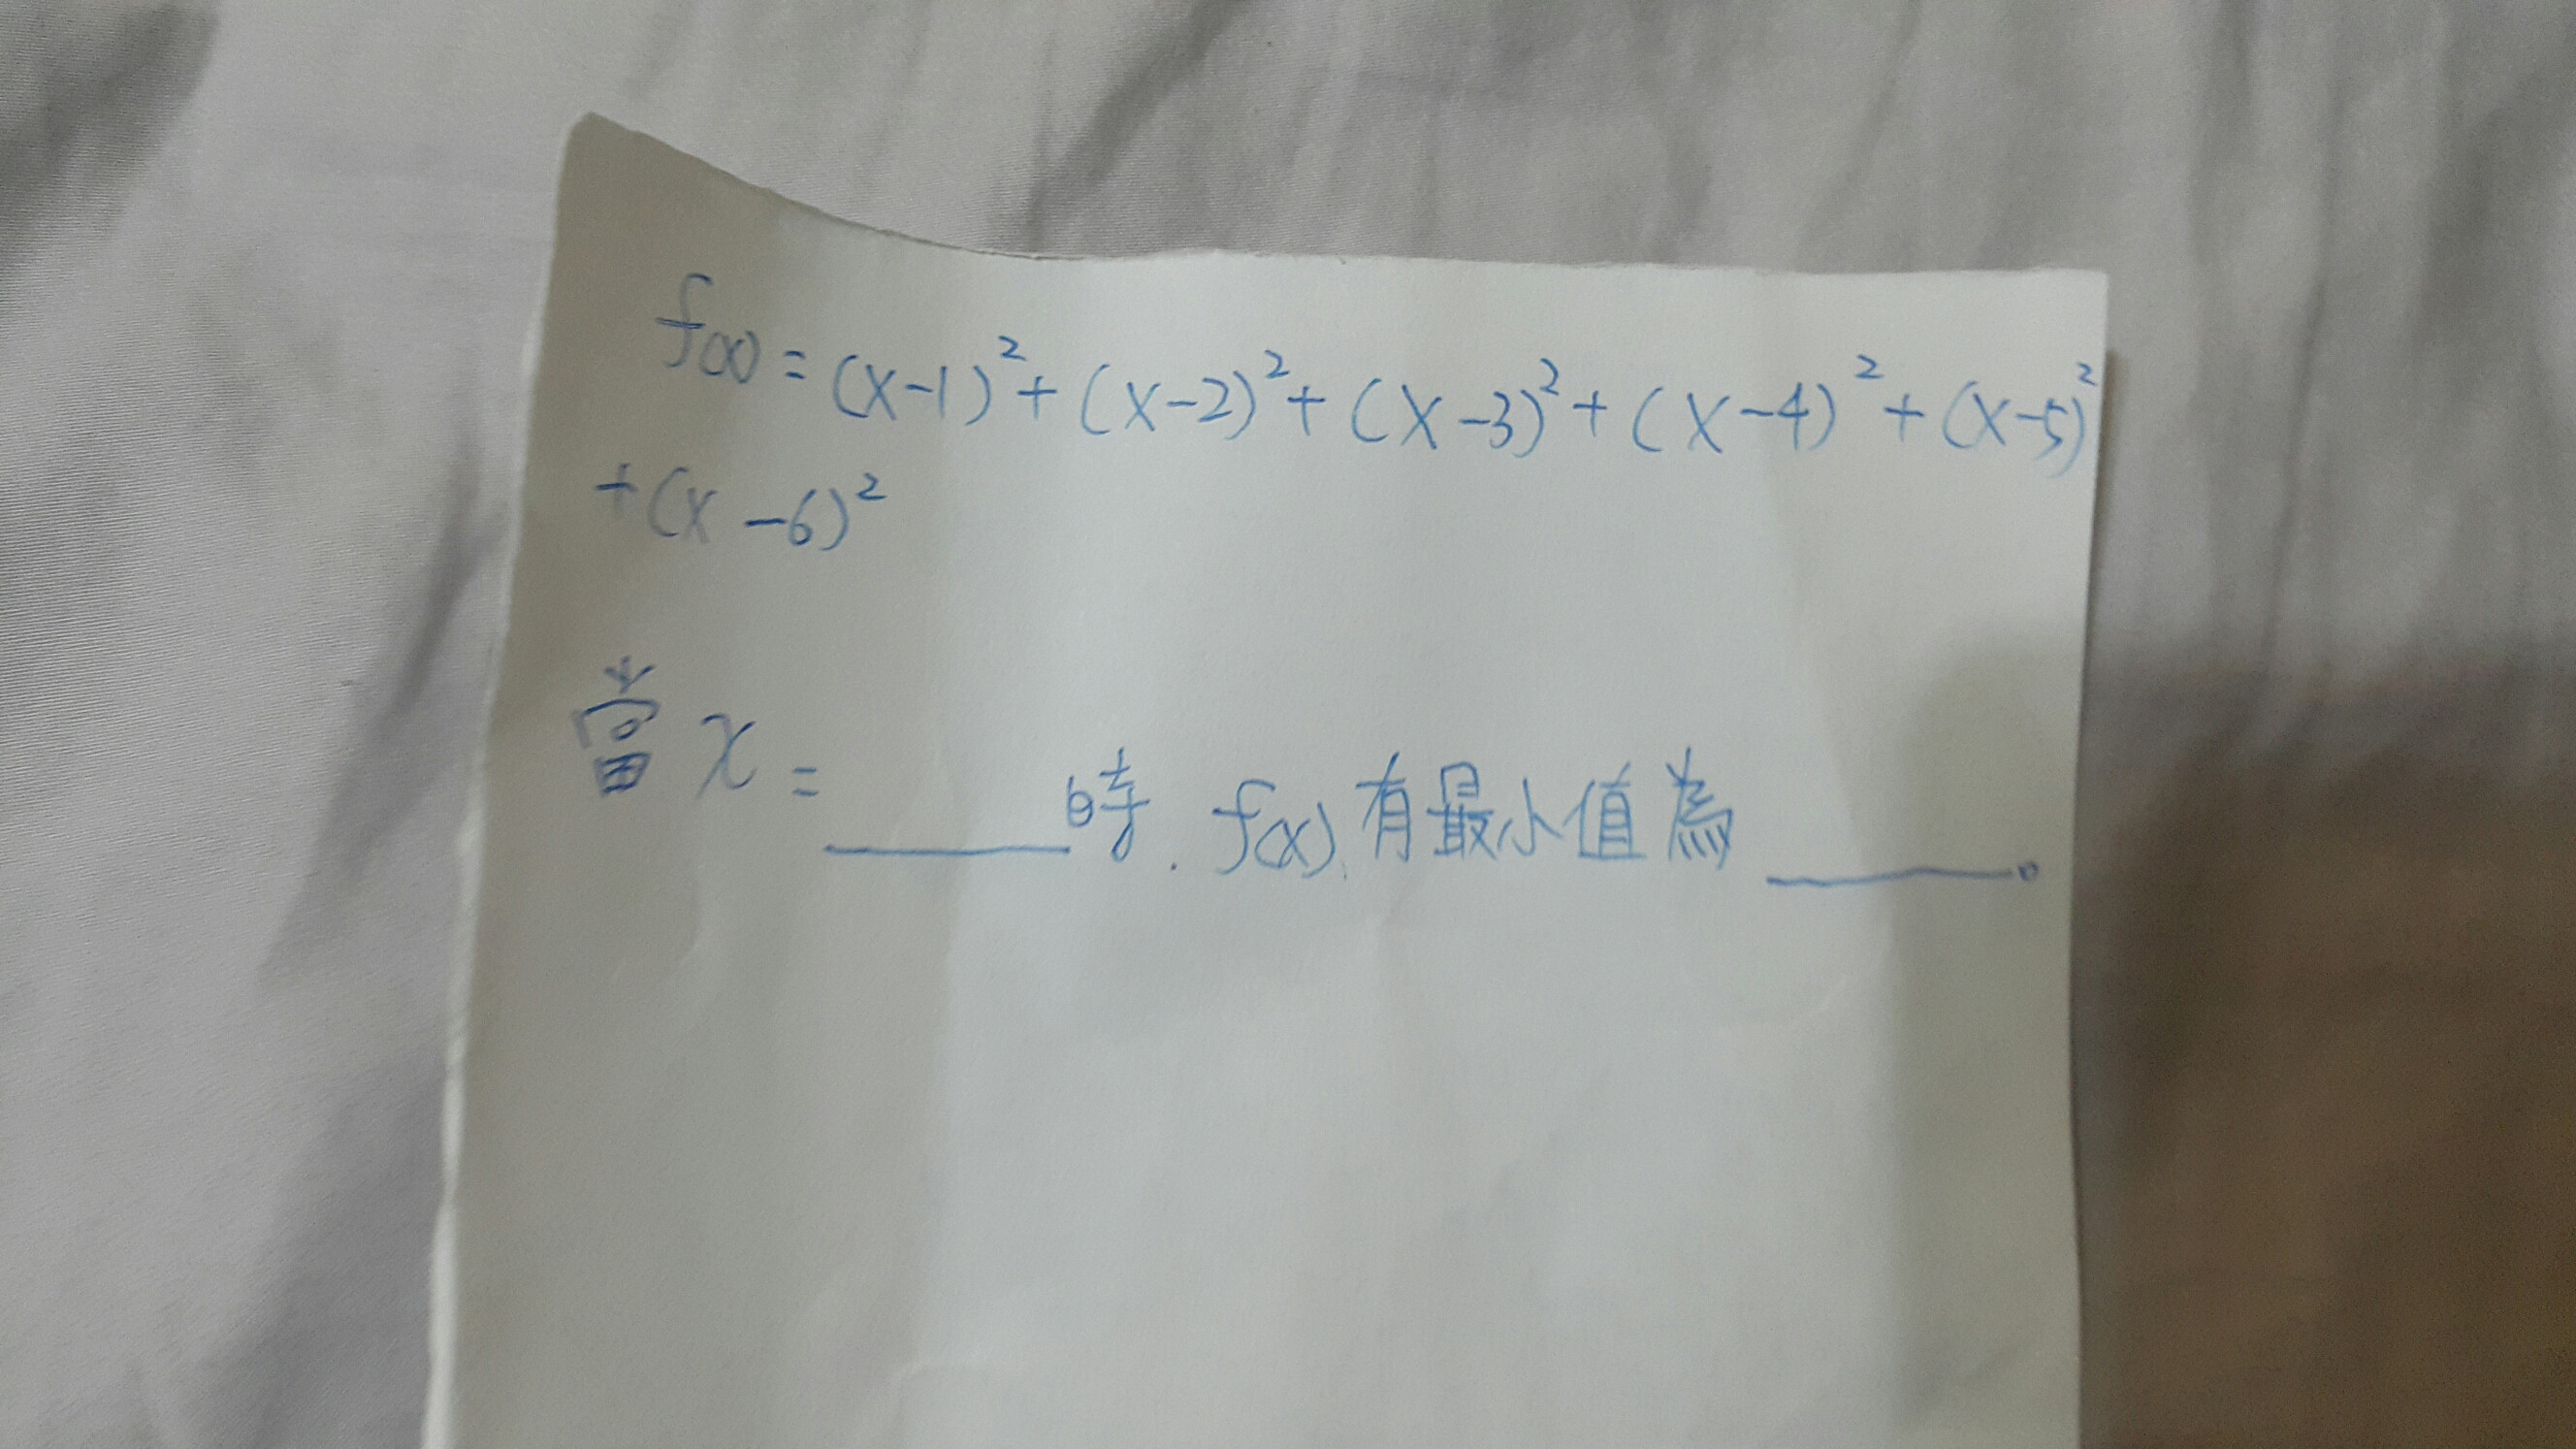 f(x) = (x-1)² + (x-2)² + (x-3)² + (x-4)² + (x-5)²
+ (x-6)²
當 x = ______ 時, f(x) 有最小值為 ______。